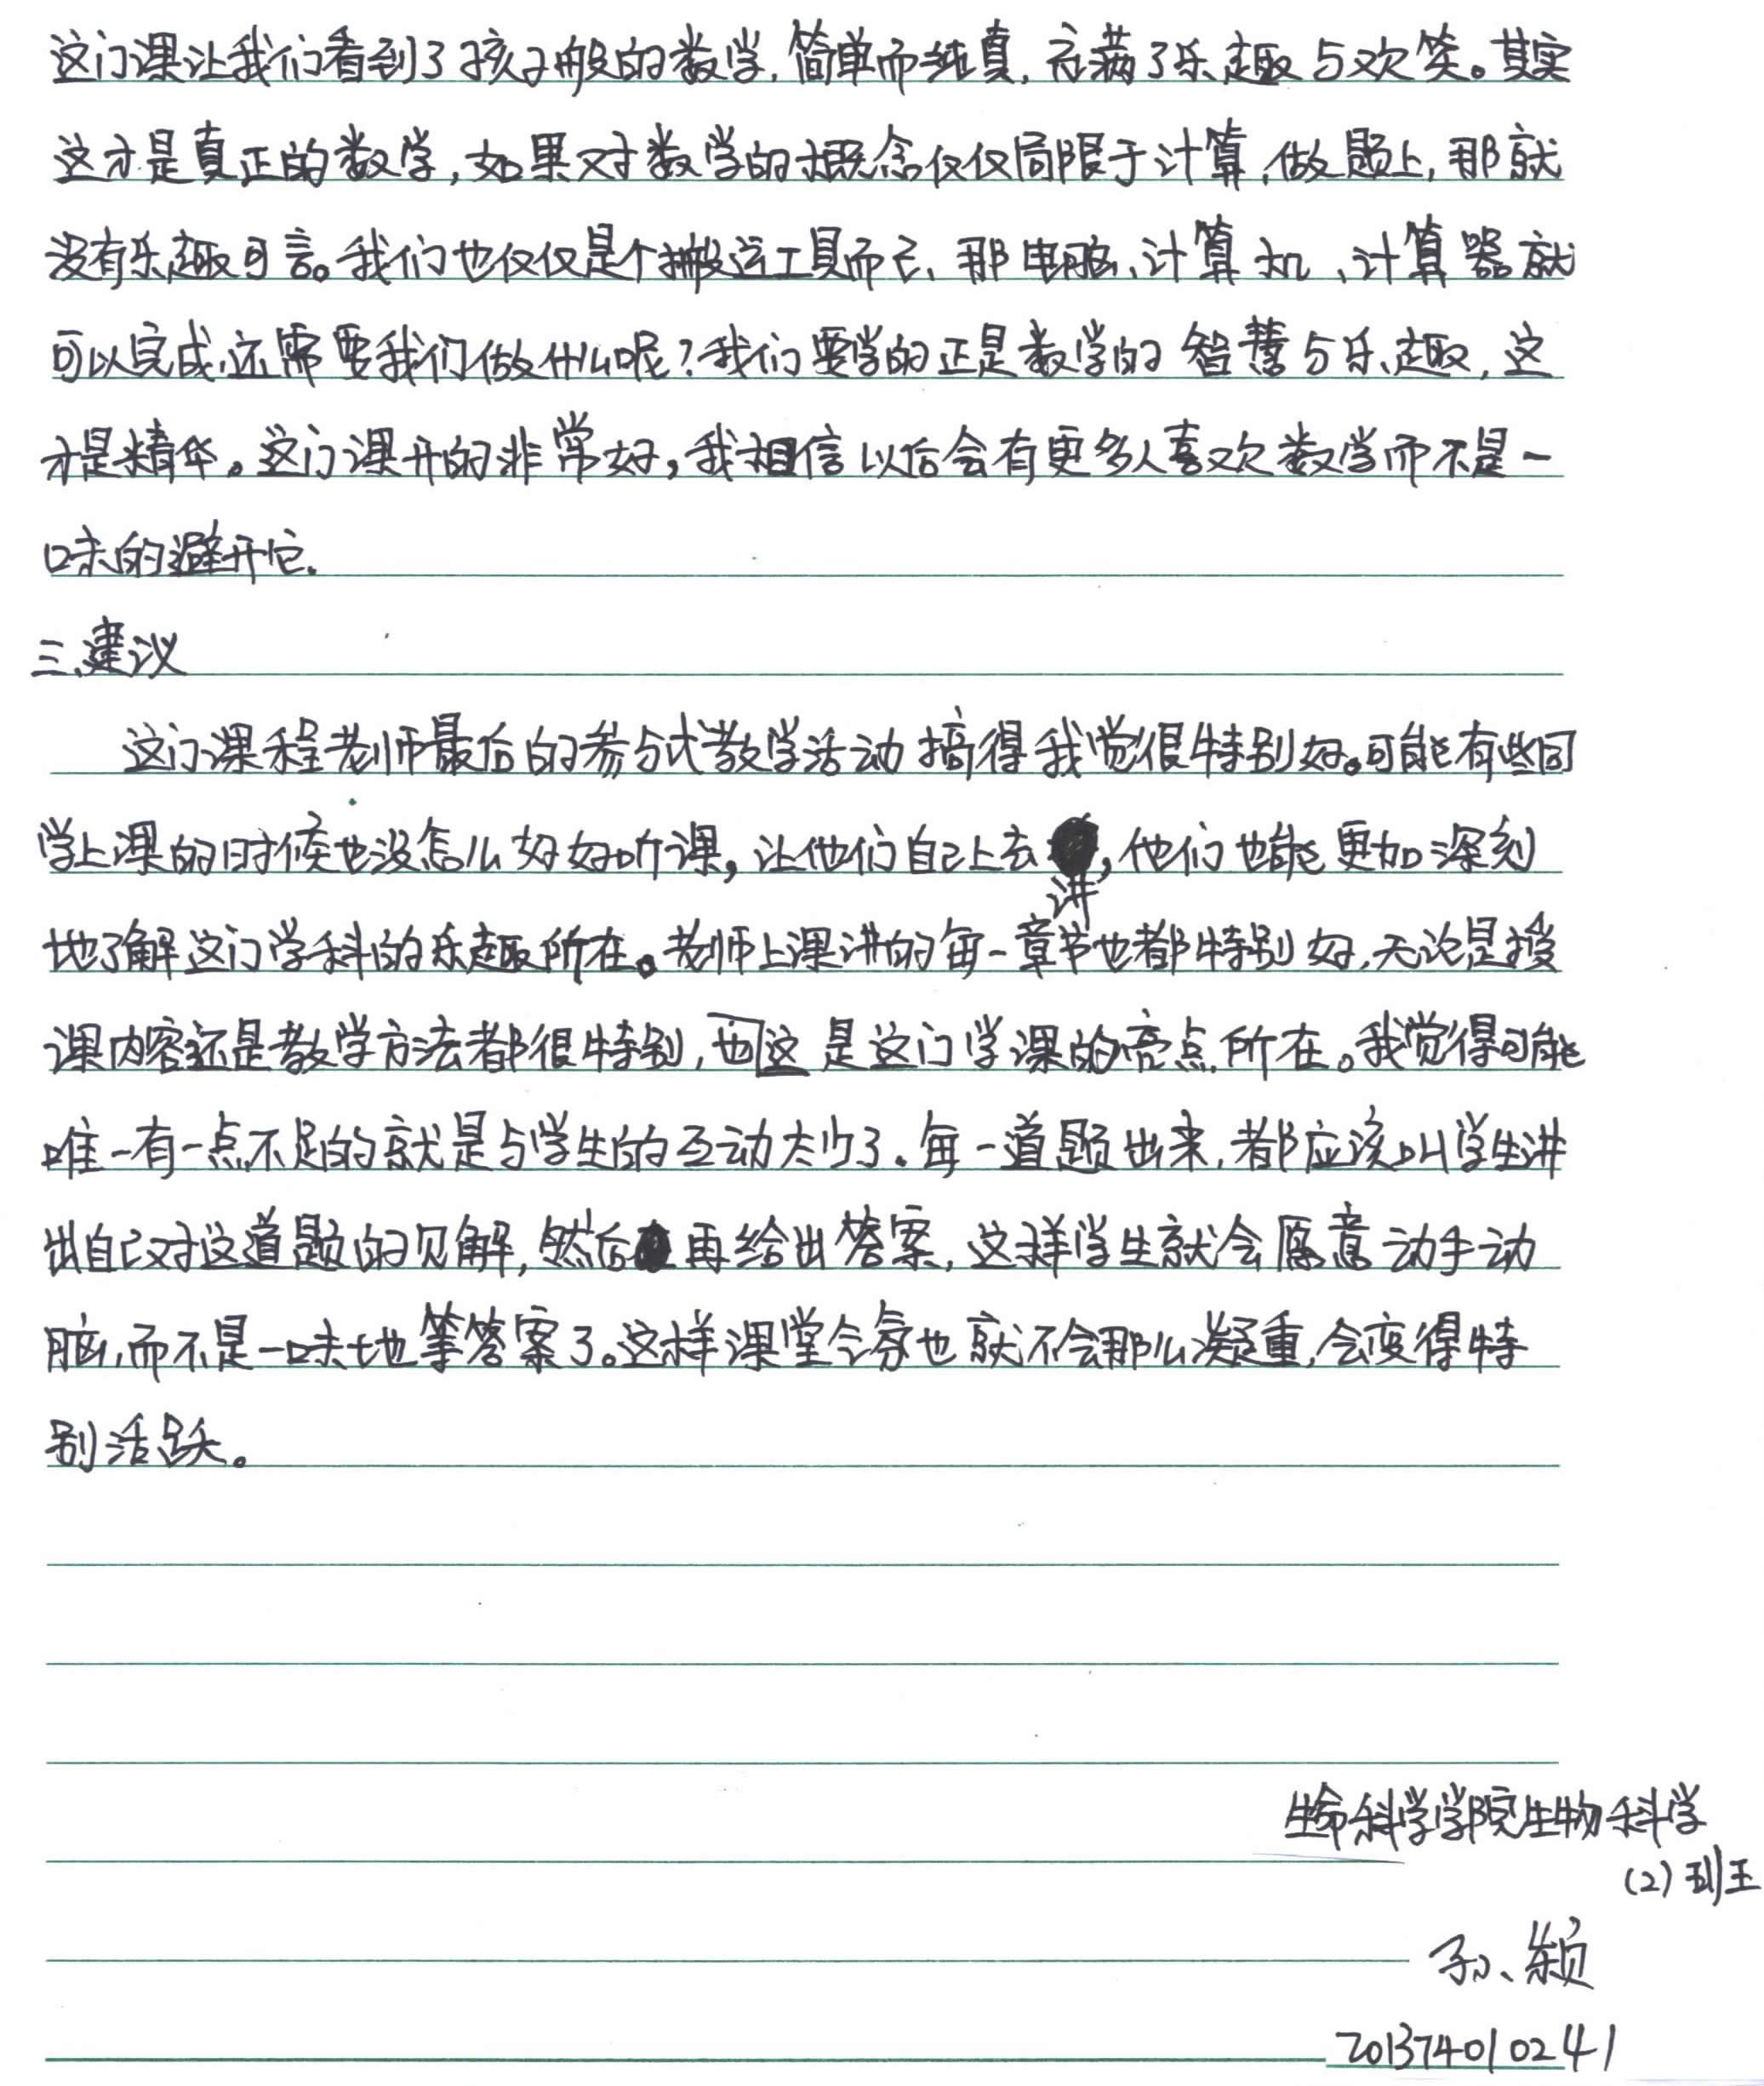 这门课让我们看到了孩子般的数学,简单而纯真,充满了乐趣与欢笑。其实
这才是真正的数学,如果对数学的概念仅仅局限于计算、做题上,那就
没有乐趣可言。我们也仅仅是个搬运工具而已、那电脑、计算机、计算器就
可以完成,还需要我们做什么呢?我们要学的正是数学的智慧与乐趣,这
才是精华。这门课开的非常好,我相信以后会有更多人喜欢数学而不是一
味的避开它.
三.建议
这门课程老师最后的参与式教学活动搞得我觉很特别好。可能有些同
学上课的时候也没怎么好好听课,让他们自己上去讲,他们也能更加深刻
地了解这门学科的乐趣所在。老师上课讲的每一章节也都特别好,无论是授
课内容还是教学方法都很特别,而这是这门学课的亮点所在。我觉得可能
唯一有一点不足的就是与学生的互动太少了.每一道题出来,都应该叫学生讲
出自己对这道题的见解,然后再给出答案,这样学生就会愿意动手动
脑,而不是一味地等答案了。这样课堂气氛也就不会那么凝重,会变得特
别活跃。
生命科学学院生物科学
(2)班
孙颖
201374010241